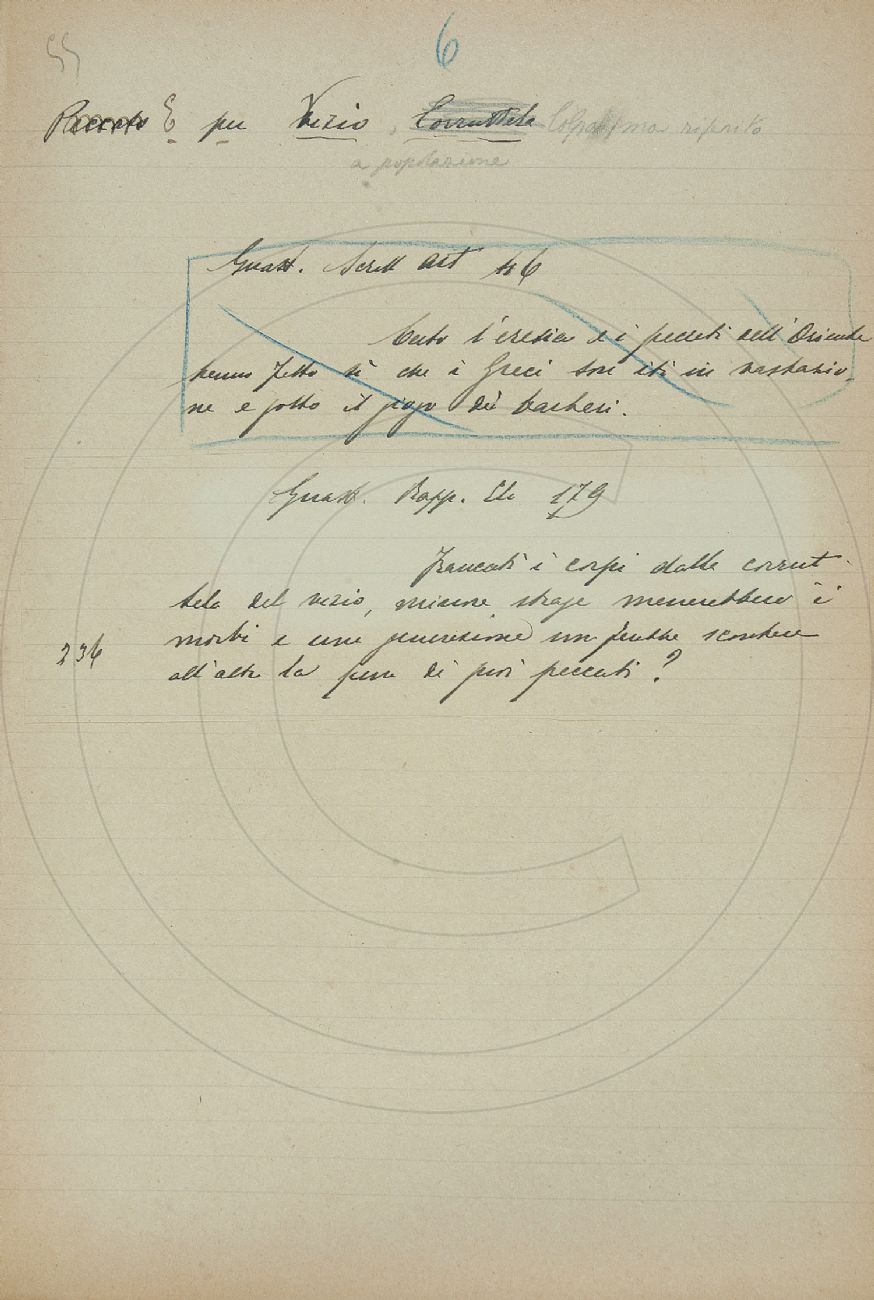 6
§§
Peccato E per Vizio, Corruttela Colpa ma riferito
a popolazione
Guast. Scritt art 46
Certo l'eresia e i peccati dell'Oriente
hanno fatto sì che i Greci son iti in vastazio-
ne e sotto il giogo dei barberi.
Guast. Rapp. El. 179
Francati i corpi dalla corrut-
tela del vizio, minore strage menerebbero i
morbi e una generazione
all'altra la pena di suoi peccati?
236